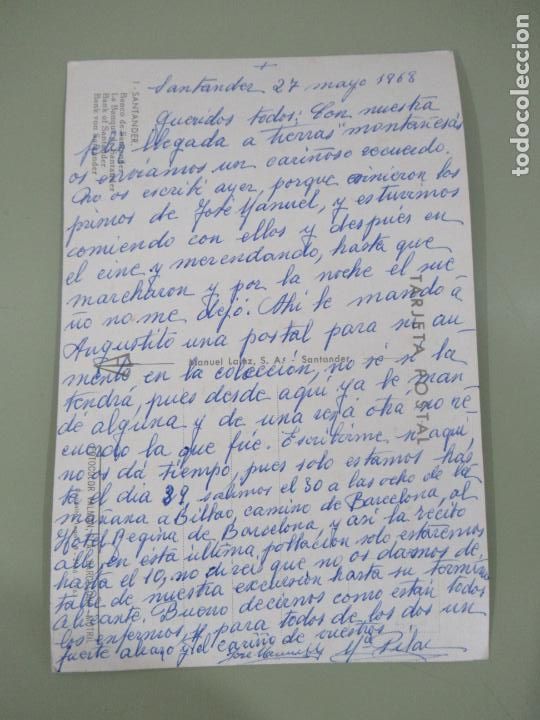 +
Santander 27 mayo 1968
Queridos todos: Con nuestra
feliz llegada a tierras "montañesas"
os enviamos un cariñoso recuerdo.
No os escribí ayer, porque vinieron los
primos de José Manuel, y estuvimos
comiendo con ellos y después en
el cine y merendando, hasta que
marcharon y por la noche el sue
ño no me dejó. Ahí le mando á
Augustito una postal para si au-
menta en la colección, no sé si la
tendrá, pues desde aquí ya le man
de alguna y de una vez a otra no re
cuerdo la que fue. Escribirme aquí,
no os dá tiempo, pues solo estamos has
ta el día 29, salimos el 30 a las ocho de la
mañana a Bilbao, camino de Barcelona, al
Hotel Regina de Barcelona, y así la recibo
allí, en esta última población solo estaremos
hasta el 10, no direis que no os damos de-
talle de nuestra excursión hasta su termino
Alicante. Bueno decirnos como están todos
los enfermos, y para todos de los dos un
fuerte abrazo y el cariño de vuestros
José Manuel y Mª Pilar
1 - SANTANDER
Banco de Santander
La Banque de Santander
Bank of Santander
Bank von Santander
TARJETA POSTAL
Manuel Lainz, S. A. - Santander
todocoleccion.net